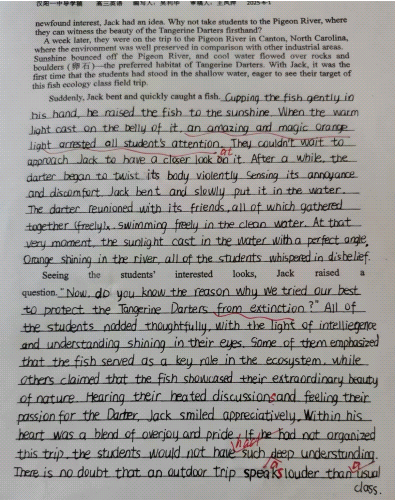 汉阳一中导学案 高三英语 编写人：吴利华 审稿人：王凤萍 2025-4-1
newfound interest, Jack had an idea. Why not take students to the Pigeon River, where
they can witness the beauty of the Tangerine Darters firsthand?
A week later, they were on the trip to the Pigeon River in Canton, North Carolina,
where the environment was well preserved in comparison with other industrial areas.
Sunshine bounced off the Pigeon River, and cool water flowed over rocks and
boulders (卵石)—the preferred habitat of Tangerine Darters. With Jack, it was the
first time that the students had stood in the shallow water, eager to see their target of
this fish ecology class field trip.
Suddenly, Jack bent and quickly caught a fish. Cupping the fish gently in
his hand, he raised the fish to the sunshine. When the warm
light cast on the belly of it, an amazing and magic orange
light arrested all student's attention. They couldn't wait to
approach Jack to have a closer look at it. After a while, the
darter began to twist its body violently. Sensing its annoyance
and discomfort Jack bent and slowly put it in the water.
The darter reunioned with its friends, all of which gathered
together (freely), swimming freely in the clean water. At that
very moment, the sunlight cast in the water with a perfect angle,
Orange shining in the river, all of the students whispered in disbelief.
Seeing the students' interested looks, Jack raised a
question. "Now, do you know the reason why we tried our best
to protect the Tangerine Darters from extinction?" All of
the students nodded thoughtfully, with the light of intelliegence
and understanding shining in their eyes. Some of them emphasized
that the fish served as a key role in the ecosystem, while
others claimed that the fish showcased their extraordinary beauty
of nature. Hearing their heated discussions and feeling their
passion for the Darter, Jack smiled appreciatively. Within his
heart was a blend of overjoy and pride. If he had not organized
this trip, the students would not have had such deep understanding.
There is no doubt that an outdoor trip speaks louder than a usual
class.